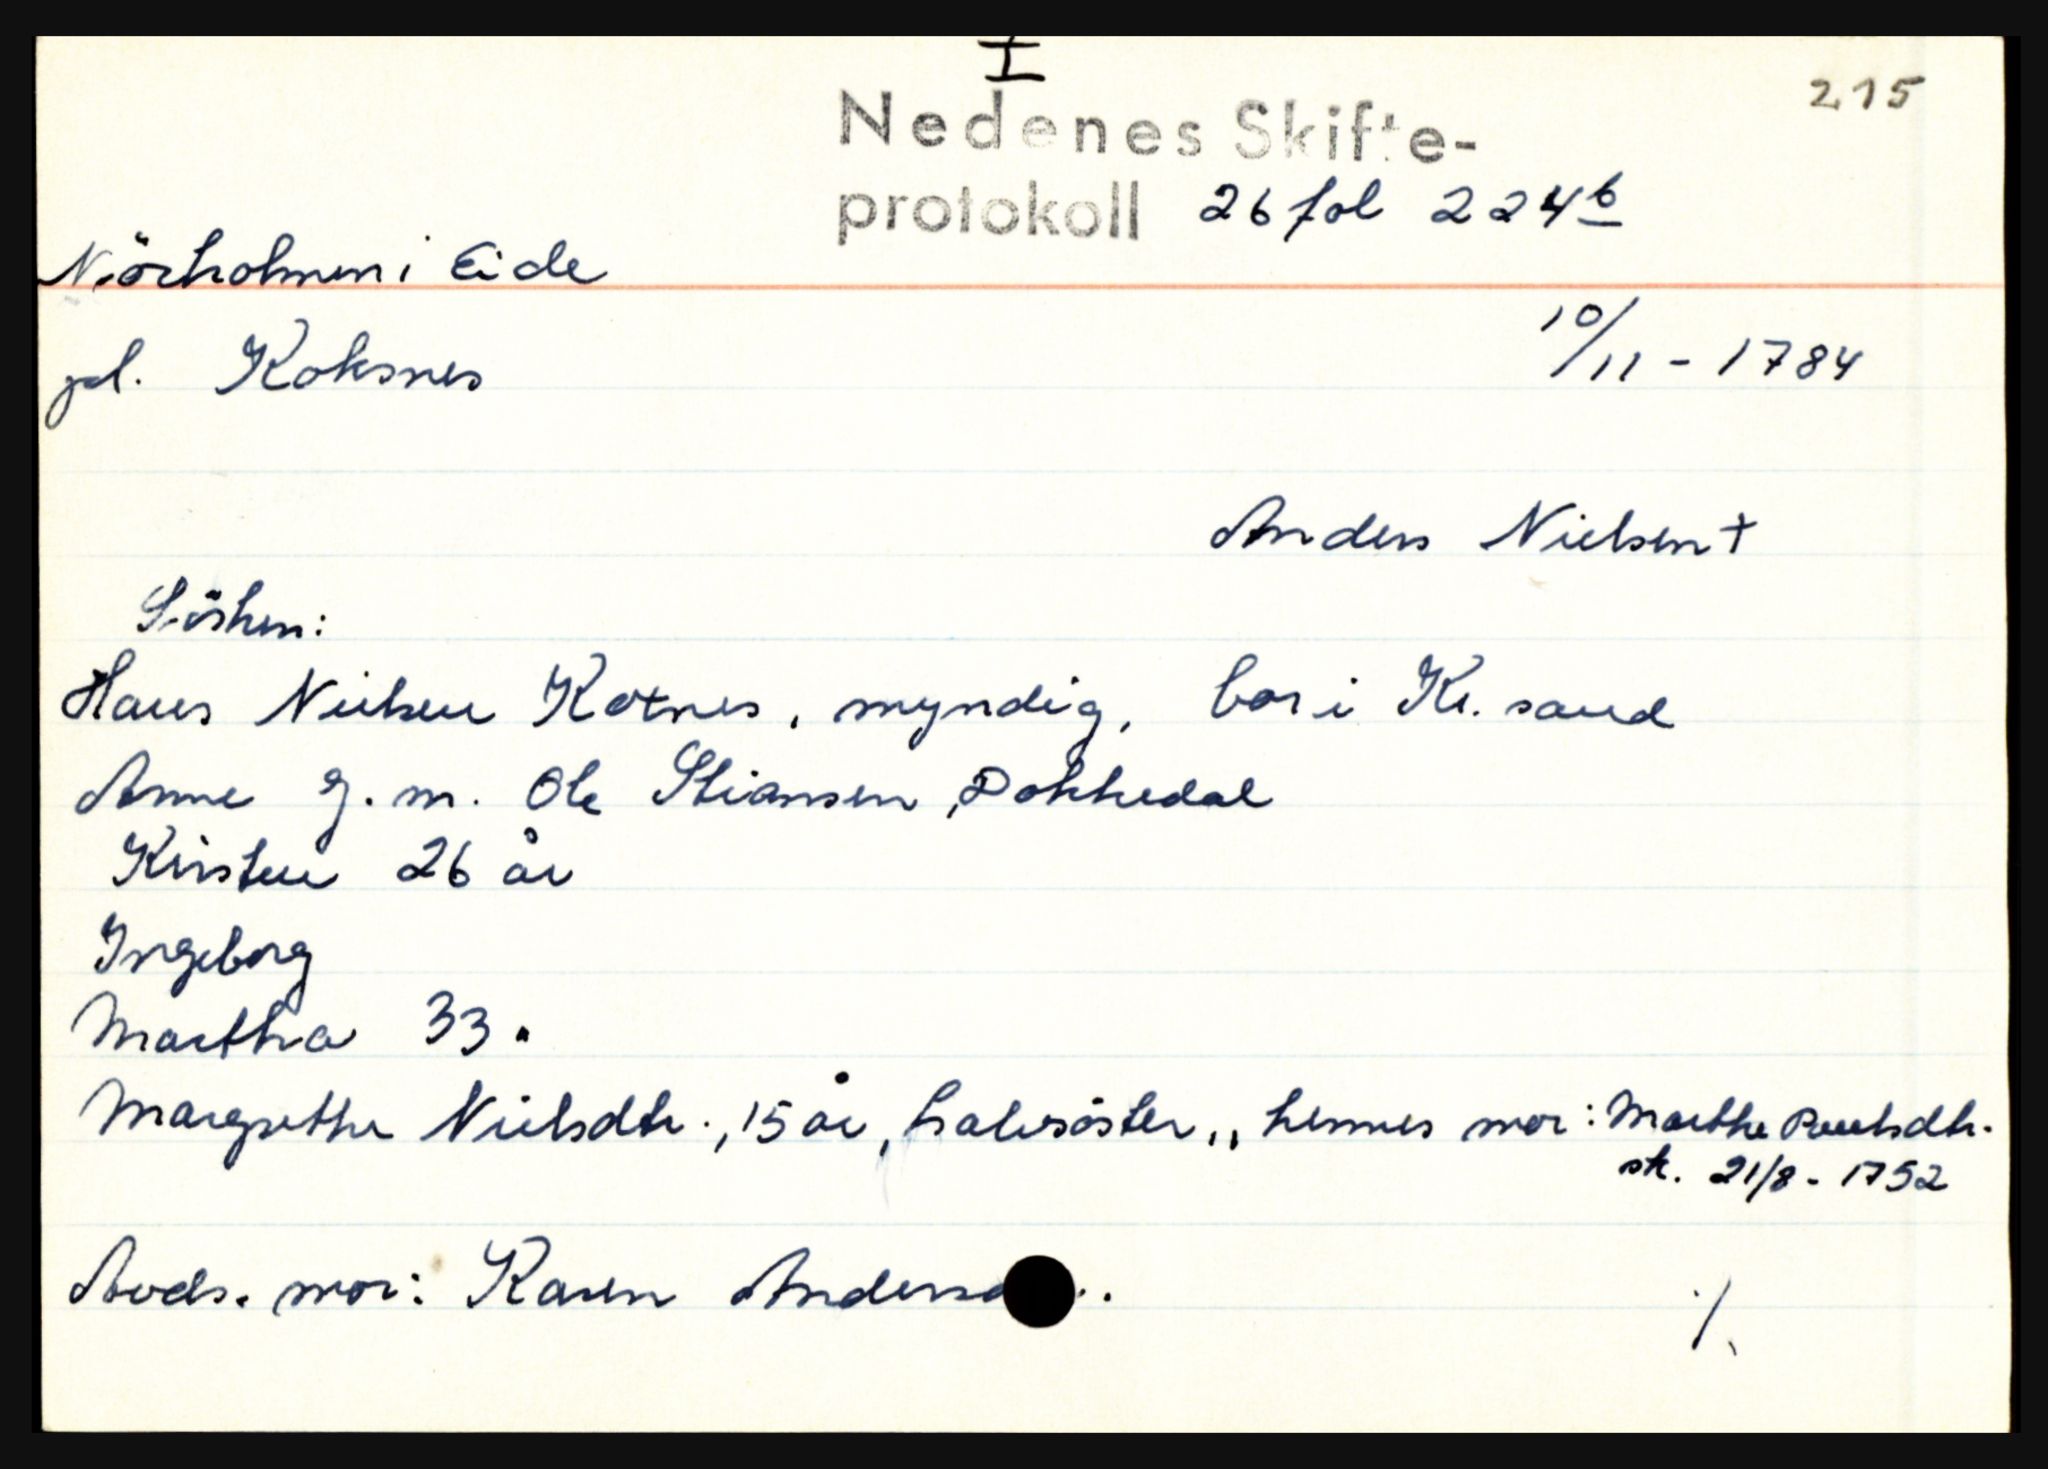 I
215
Nedenes Skifte-
protokoll 26 fol 224b
Nörholmen i Eide
pl. Koksnes
10/11 - 1784
Anders Nielsen +
Sösken:
Hans Nielsen Koxnes, myndig, bor i Kr.sand
Anne g.m. Ole Stiansen, Dokkedal
Kirsten 26 år
Ingeborg
Martha 33 "
Margrethe Nielsdtr., 15 år, halvsöster,, hennes mor: Marthe Poulsdtr.
sk. 21/8 - 1752
Avds. mor: Karen Andersd..
./.